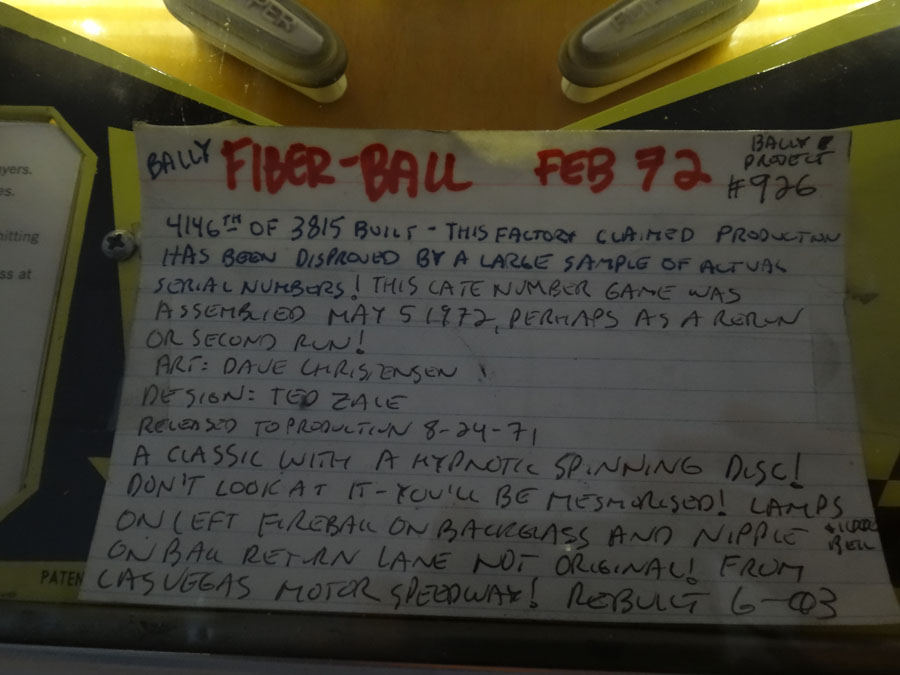 FLIPPER
FLIPPER
yers.
es.
nitting
ss at
BALLY FIBER-BALL FEB 72
BALLY
PROJECT
#926
4146TH OF 3815 BUILT - THIS FACTORY CLAIMED PRODUCTION
HAS BEEN DISPROVED BY A LARGE SAMPLE OF ACTUAL
SERIAL NUMBERS! THIS LATE NUMBER GAME WAS
ASSEMBLED MAY 5 1972, PERHAPS AS A RERUN
OR SECOND RUN!
ART: DAVE CHRISTENSEN
DESIGN: TED ZALE
RELEASED TO PRODUCTION 8-24-71
A CLASSIC WITH A HYPNOTIC SPINNING DISC!
DON'T LOOK AT IT - YOU'LL BE MESMORISED! LAMPS
ON LEFT FIREBALL ON BACKGLASS AND NIPPLE
ON BALL RETURN LANE NOT ORIGINAL! FROM
LAS VEGAS MOTOR SPEEDWAY! REBUILT 6-03
PATEN